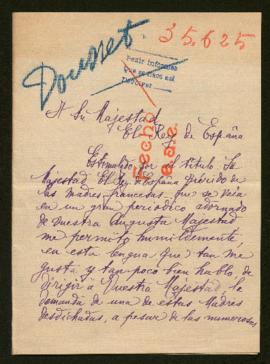 Dousset
35.625
Pedir informes
A Su Majestad
El Rey de España
Estimulada por el título de
Majestad El Rey de España querido de
las madres francesas que se veía
en un gran periódico adornado
de Vuestra Augusta Majestad
me permito humildemente,
en esta lengua que tan me
gusta y tan poco bien hablo, de
dirigir a Vuestra Majestad, le
demanda de una de estas Madres
desdichadas, a pesar de las numerosas